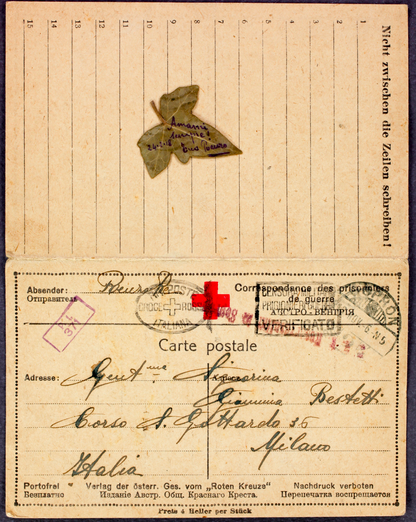 Nicht zwischen die Zeilen schreiben!
1
2
3
4
5
6
7
8
9
10
11
12
13
14
15
Amami
sempre!
Absender:
Отправитель
Correspondance des prisonniers
de guerre
АВСТРО-ВЕНГРІЯ
CROCE ROSSA
ITALIANA
VERIFICATO
Carte postale
Adresse:
Gent.me Signorina
Giannina Bestetti
Corso S. Gottardo 36
Milano
Italia
Portofrei Verlag der österr. Ges. vom „Roten Kreuze" Nachdruck verboten
Безплатно Изданіе Австр. Общ. Краснаго Креста. Перепечатка воспрещается
Preis 4 Heller per Stück